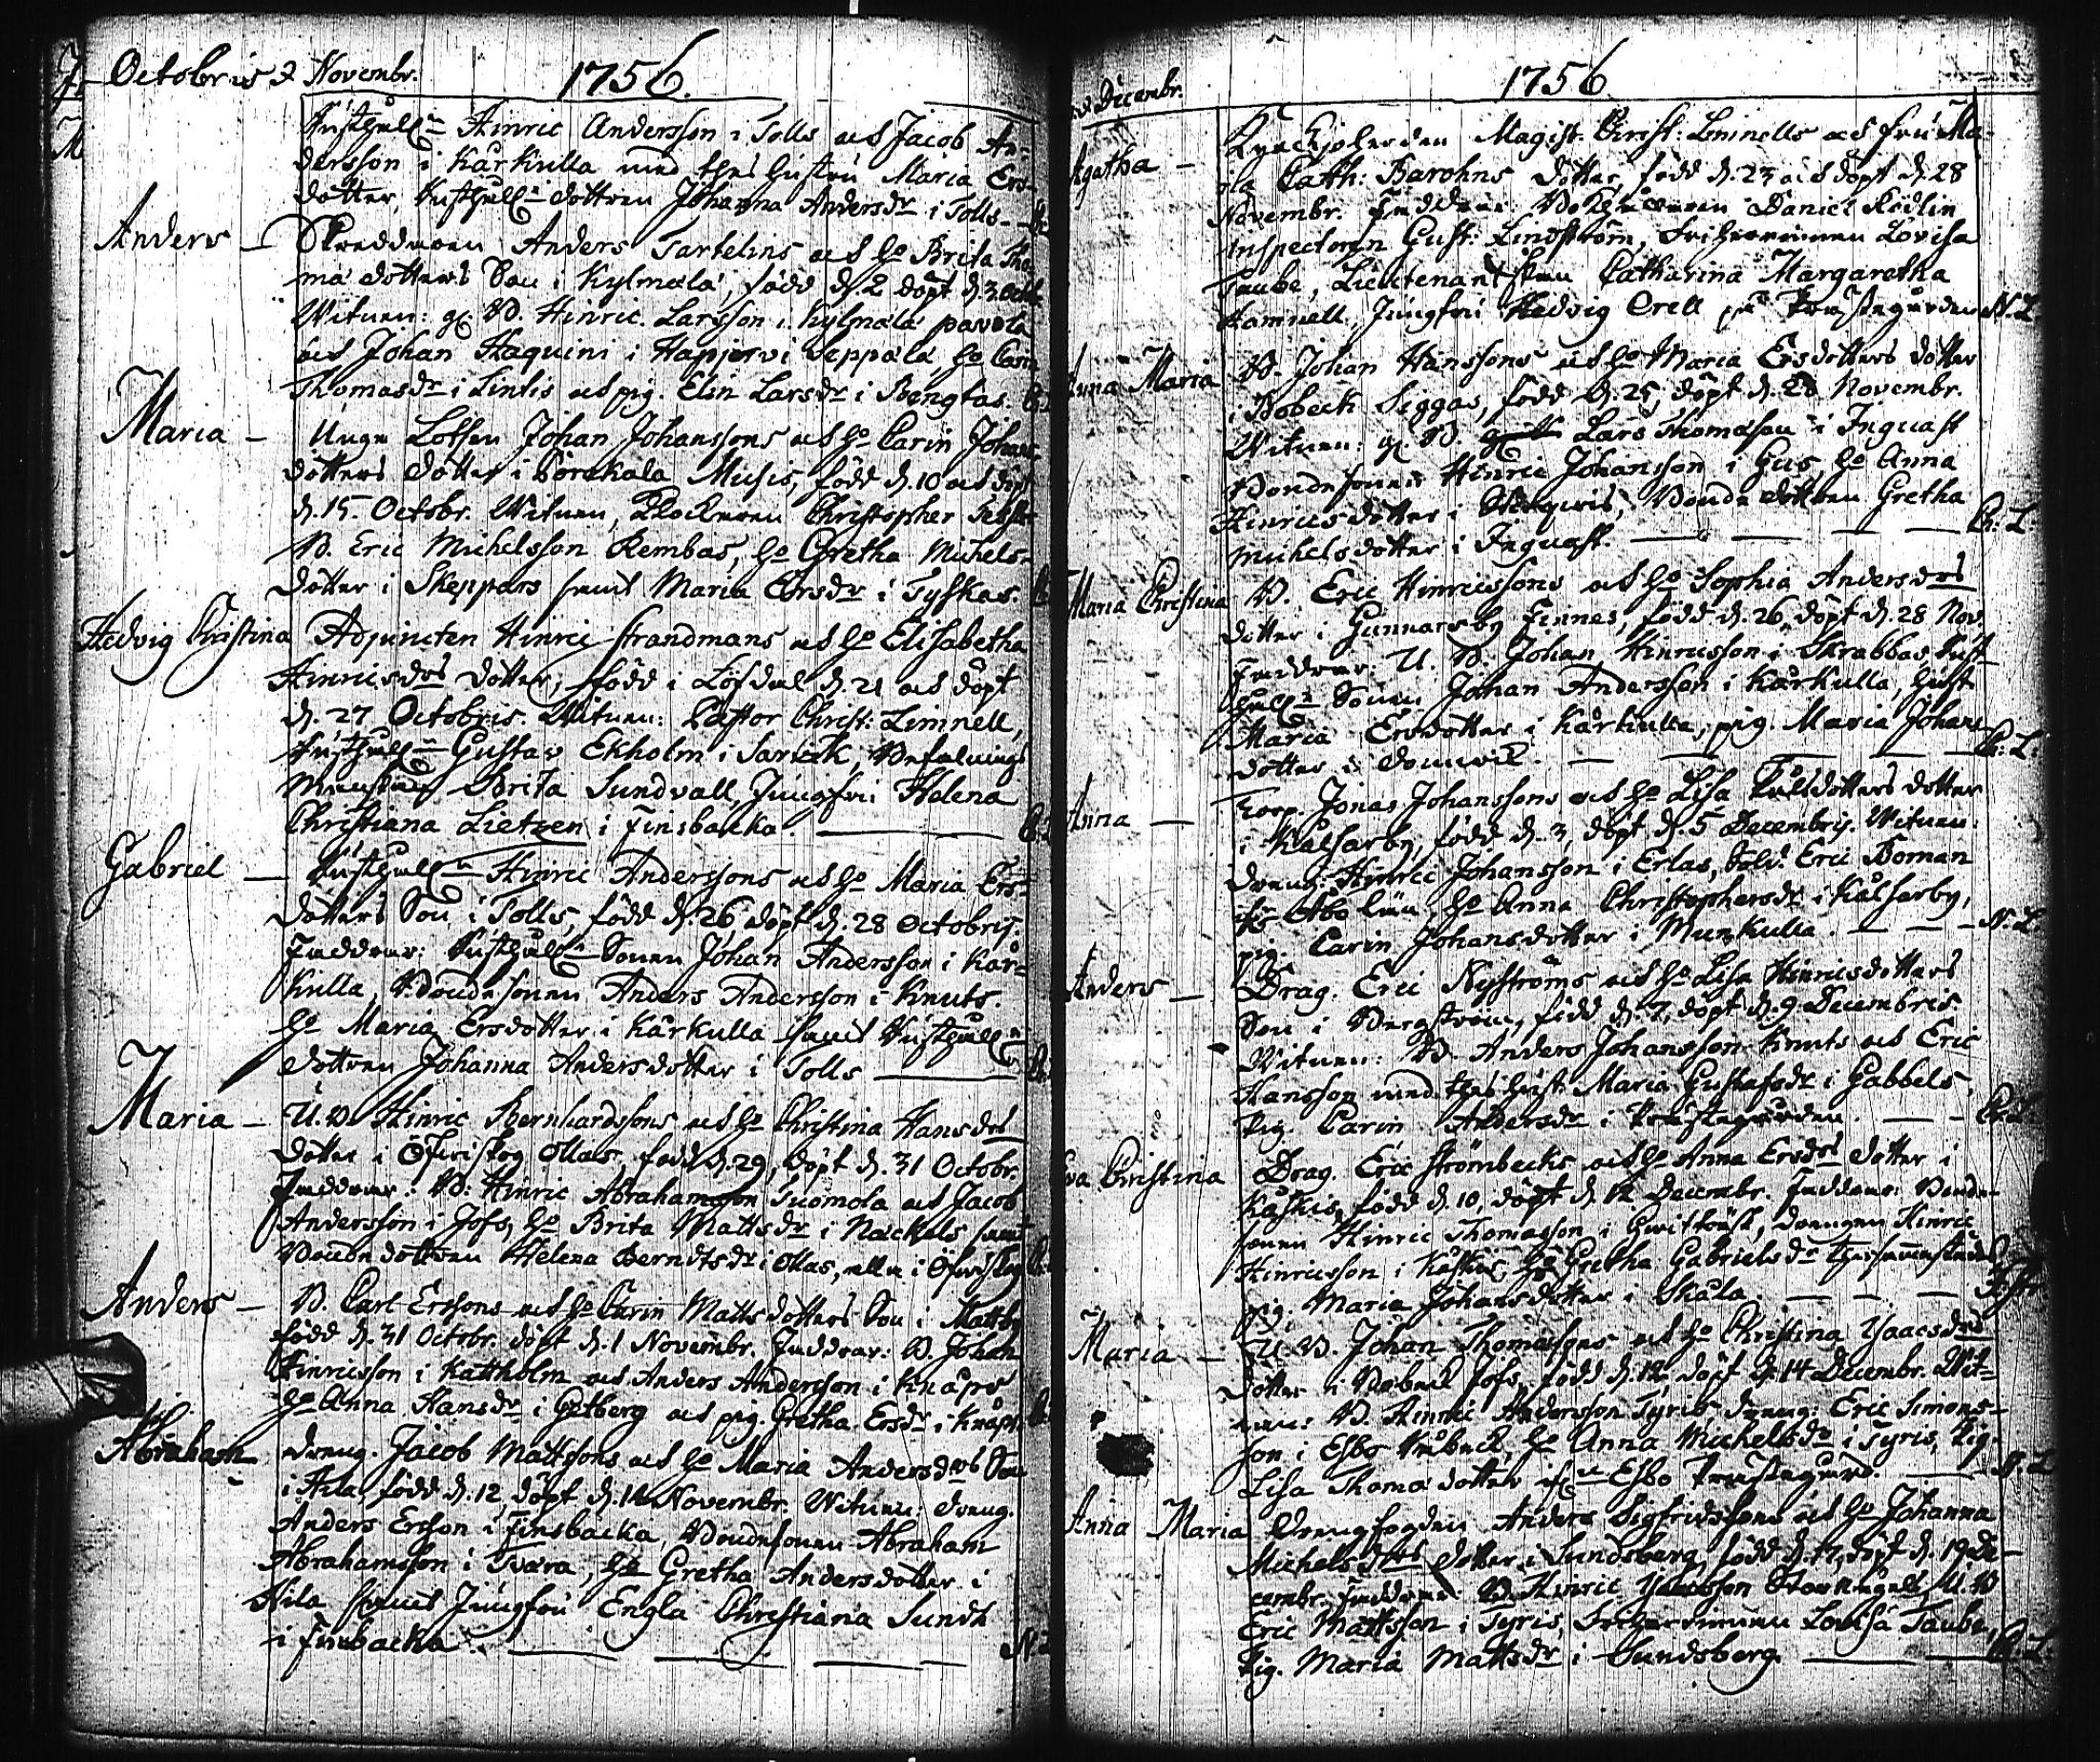 Octobris & Novembr. 1756.
Rusthåll:n Hinric Andersson i Tolls och Jacob An-
dersson i Kårkulla med thes hustru Maria Ers-
dotter, Rusthåll:n dottren Johanna Andersdr i Tolls
Anders — Skreddaren Anders Tartelins och H:o Brita Tho-
mä dotters Son i Kylmälä, född d. 2 döpt d. 3. Octob
Witnen: gl. B. Hinric Larsson i Kylmälä pavola
och Johan Haquini i Hapjervi Seppälä, H:o Carin
Thomasdr i Lintis och pig. Elin Larsdr i Bengtas.
Maria — Unge Lotsen Johan Johanssons och H:o Carin Johans
dotters dotter i Sörekala Musis, född d. 10 och döpt
d. 15. Octobr. Witnen, Klockaren Christopher
B. Eric Michelsson Rembas, H:o Gretha Michels-
dotter i Skeppars samt Maria Ersdr i Tyskas.
Hedvig Christina Adjuncten Hinric Strandmans och H:o Elisabetha
Hinricsdrs dotter, född i Löfdal d. 21 och döpt
d. 27 Octobris. Witnen: Pastor Christ: Limnell,
Rusthåll:n Gustav Ekholm i Sarvik, Befalnings
Brita Sundvall, Jungfru Helena
Christiana Lietzen i Finsbacka
Gabriel — Rusthåll:n Hinric Anderssons och H:o Maria Ers-
dotters Son i Tolls, född d. 26 döpt d. 28 Octobris.
Faddrar: Rusthåll:n Sonen Johan Andersson i Kår-
kulla, Bondesonen Anders Andersson i Knuts.
H:o Maria Ersdotter i Kårkulla samt Rusthåll:n
dottren Johanna Andersdotter i Tolls
Maria — U. B. Hinric Bernhardssons och H:o Christina Hansdrs
dotter i Öfwerskog Ollas, född d. 29, döpt d. 31 Octobr.
Faddrar: B: Hinric Abrahamsson Tuomola och Jacob
Andersson i Jofs, H:o Brita Mattsdr i Nackels samt
Bonde dottren Helena Berndtsdr i Ollas, alla i Öfwerskog
Anders — B. Carl Erssons och H:o Carin Mattsdotters Son i Mattby
född d. 31 Octobr. döpt d. 1 Novembr. Faddrar: B. Johan
Hinricsson i Kattholm och Anders Andersson i Knäprs
H:o Anna Hansdr i Getberg och pig. Gretha Ersdr i Knäprs
Abraham dreng. Jacob Mattssons och H:o Maria Andersdrs Son
i Hila, född d. 12 döpt d. 14 Novembr. Witnen: dreng.
Anders Ersson i Finsbacka, Bondesonen Abraham
Abrahamsson i Tvära, H:o Gretha Andersdotter i
Hila samt Jungfru Engla Christiana Sundh
i Finsbacka.
& Decembr. 1756
Agatha — Kyrckioherden Magist. Christ: Limnells och fru Ma-
ria Cath: Barohns dotter, född d. 23 och döpt d. 28
Novembr. Faddrar: Daniel Rödlin
Inspectoren Gust: Lindström, Friherrinnan Lovisa
Taube, Lieutenantskan Catharina Margaretha
Hamnell, Jungfru Hedvig Orell på Prästegården N. L.
Anna Maria B. Johan Hanssons och H:o Maria Ersdotters dotter
i Bobeck Siggas, född d. 25, döpt d. 28 Novembr.
Witnen: gl. B. Lars Thomasson i Ingvast
Bondesonen Hinric Johansson i Gus, H:o Anna
Hinricsdotter i, Bonde dottren Gretha
Michelsdotter i Ingvast. — C. L.
Maria Christina B. Eric Hinricssons och H:o Sophia Andersdrs
dotter i Gunnarsby Finnes, född d. 26, döpt d. 28 Nov.
Faddrar: U. B. Johan Hinricsson i Skrabbas, Rust-
håll:n Sonen Johan Andersson i Kårkulla, Hust.
Maria Ersdotter i Kårkulla, pig. Maria Johans
dotter i Domwik. — C. L.
Anna — Torp. Jonas Johanssons och H:o Lisa dotters dotter
i Kålsarby, född d. 3, döpt d. 5 Decembris. Witnen:
dreng. Hinric Johansson i Erlas, Sold. Eric Boman
Åbo län, H:o Anna Christophersdr i Kålsarby,
pig. Carin Johansdotter i Munkulla. — N. L.
Anders — Drag. Eric Nyströms och H:o Lisa Hinricsdotters
Son i Bergström, född d. 7, döpt d. 9 Decembris
Witnen: B. Anders Johansson Knuts och Eric
Hansson med thes hust. Maria Gustafsdr i Gabbels
Pig. Carin Andersdr i Prästegården. — C. L.
Eva Christina Drag. Eric Strömbecks och H:o Anna Ersdrs dotter i
Kåskis, född d. 10, döpt d. 12 Decembr. Faddrar: Bonde-
sonen Hinric Thomasson i, drengen Hinric
Hinricsson i Kåskis, H:o Gretha Gabrielsdr thersammastädes
pig. Maria Johansdotter i Skåla. —
Maria — U. B. Johan Thomassons och H:o Christina Ysaacsdrs
dotter i Bobeck Jofs, född d. 12, döpt d. 14 Decembr. Wit-
nen: B. Hinric Andersson Tyris, dreng: Eric Simons-
son i Esbo, H:o Anna Michelsdr i Tyris, Pig.
Lisa Thomædotter Esbo Prästegård. — N. L.
Anna Maria Drengfogden Anders Sigfridssons och H:o Johanna
Michelsdrs dotter i Sundsberg, född d. 17, döpt d. 19 De-
cembr. Faddrar: B. Hinric Jacobsson, U. B
Eric Mattsson i Tyris, Friherrinnan Lovisa Taube,
Pig. Maria Mattsdr i Sundsberg. — C. L.